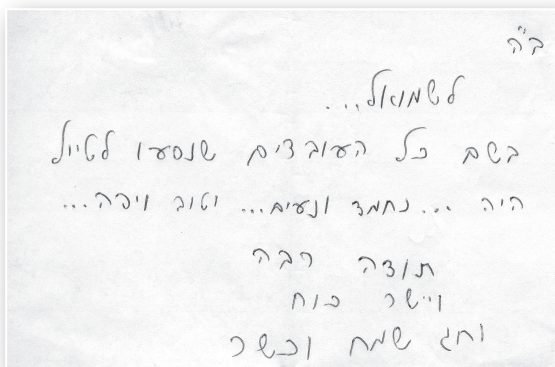 ב"ה
לשמואל...
בשם כל העובדים שנסעו לטייל
היה ... נחמד ונעים... וטוב ויפה...
תודה רבה
ויישר כוח
וחג שמח וכשר